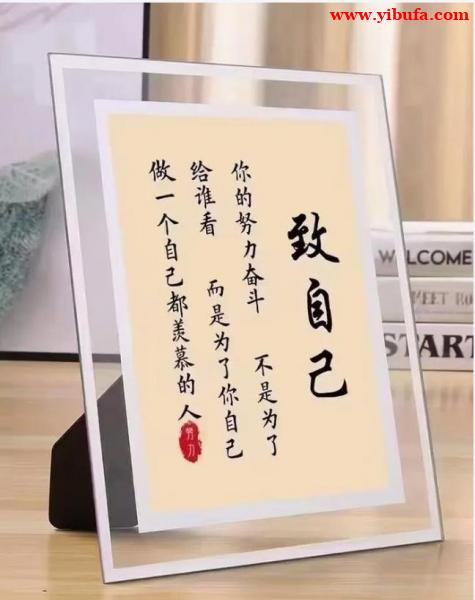 www.yibufa.com
致自己
你的努力奋斗 不是为了
给谁看 而是为了你自己
做一个自己都羡慕的人
努力
WELCOME
START